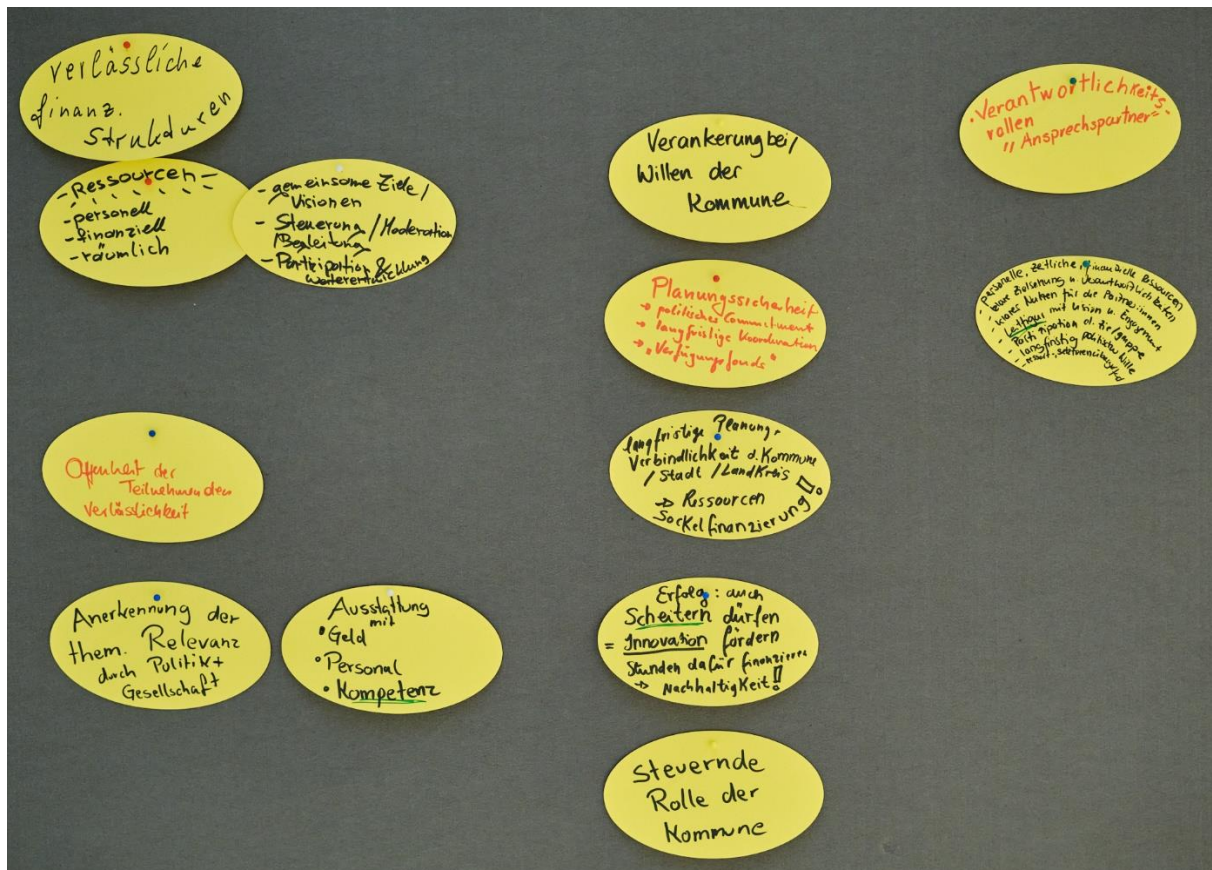 verlässliche
finanz.
Strukturen
- Ressourcen -
- personell
- finanziell
- räumlich
- gemeinsome Ziele /
Visionen
- Steuerung / Moderation
/Begleitung
- Partizipation &
Weiterentwicklung
Offenheit der
Teilnehmenden
Verlässlichkeit
Anerkennung der
them. Relevanz
durch Politik +
Gesellschaft
Ausstattung
mit
• Geld
• Personal
• Kompetenz
Verankerung bei /
Willen der
Kommune
Planungssicherheit
→ politisches Commitment
→ langfristige Koordination
→ "Verfügungsfonds"
langfristige Planung.
Verbindlichkeit d. Kommune
/ Stadt / Landkreis
→ Ressourcen
Sockelfinanzierung!
Erfolg: auch
Scheitern dürfen
= Innovation fördern
Stunden dafür finanzieren
→ Nachhaltigkeit!
Steuernde
Rolle der
Kommune
• Verantwortlichkeits-
rollen
"Ansprechspartner"
personelle, zeitliche, finanzielle Ressourcen
- klare Zielsetzung u. Verantwortlichkeiten
- klares Nutzen für die Partner:innen
mit Vision u. Engagement
- Partizipation d. Zielgruppe
- langfristig politischer Wille